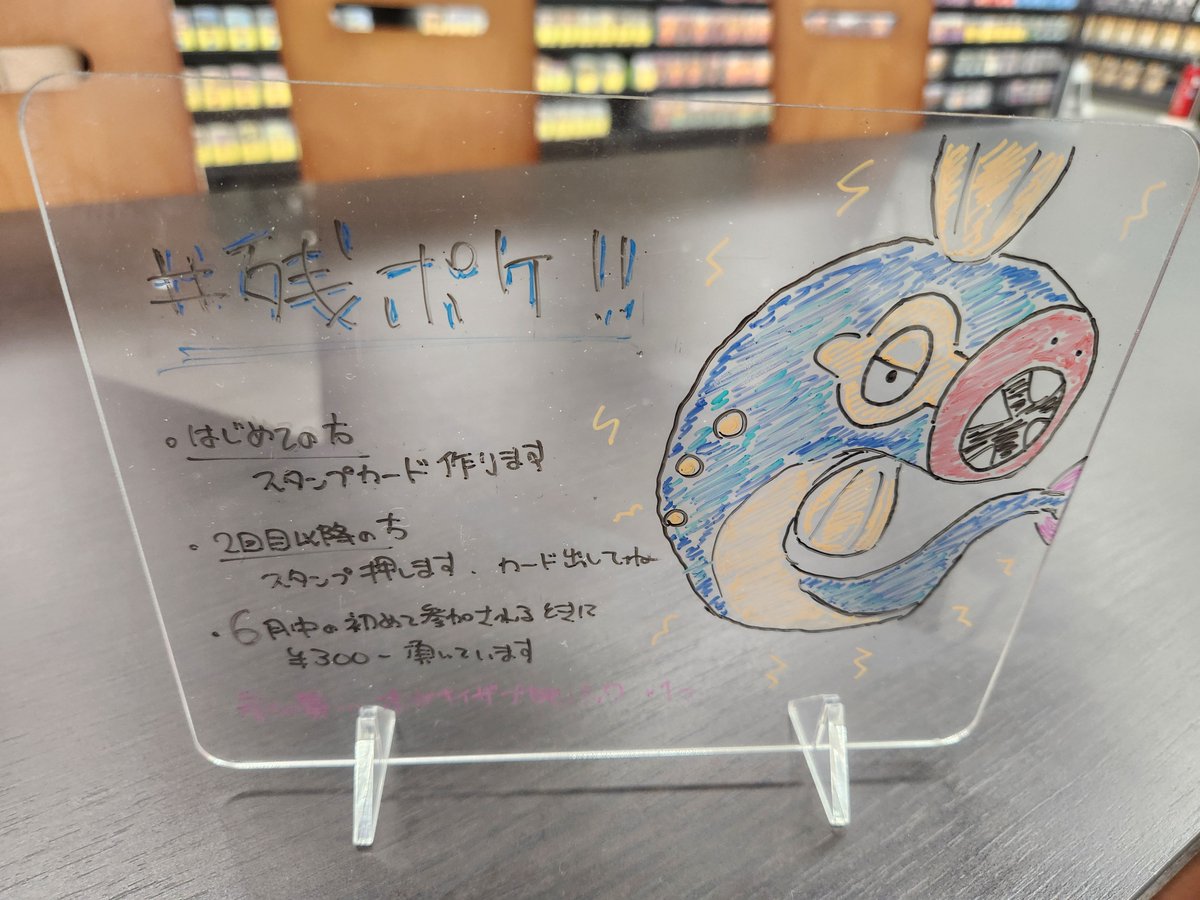 #残ポケ!!
・はじめての方
スタンプカード作ります
・2回目以降の方
スタンプ押します、カード出してね
・6月中の初めて参加されるときに
¥300-頂いています